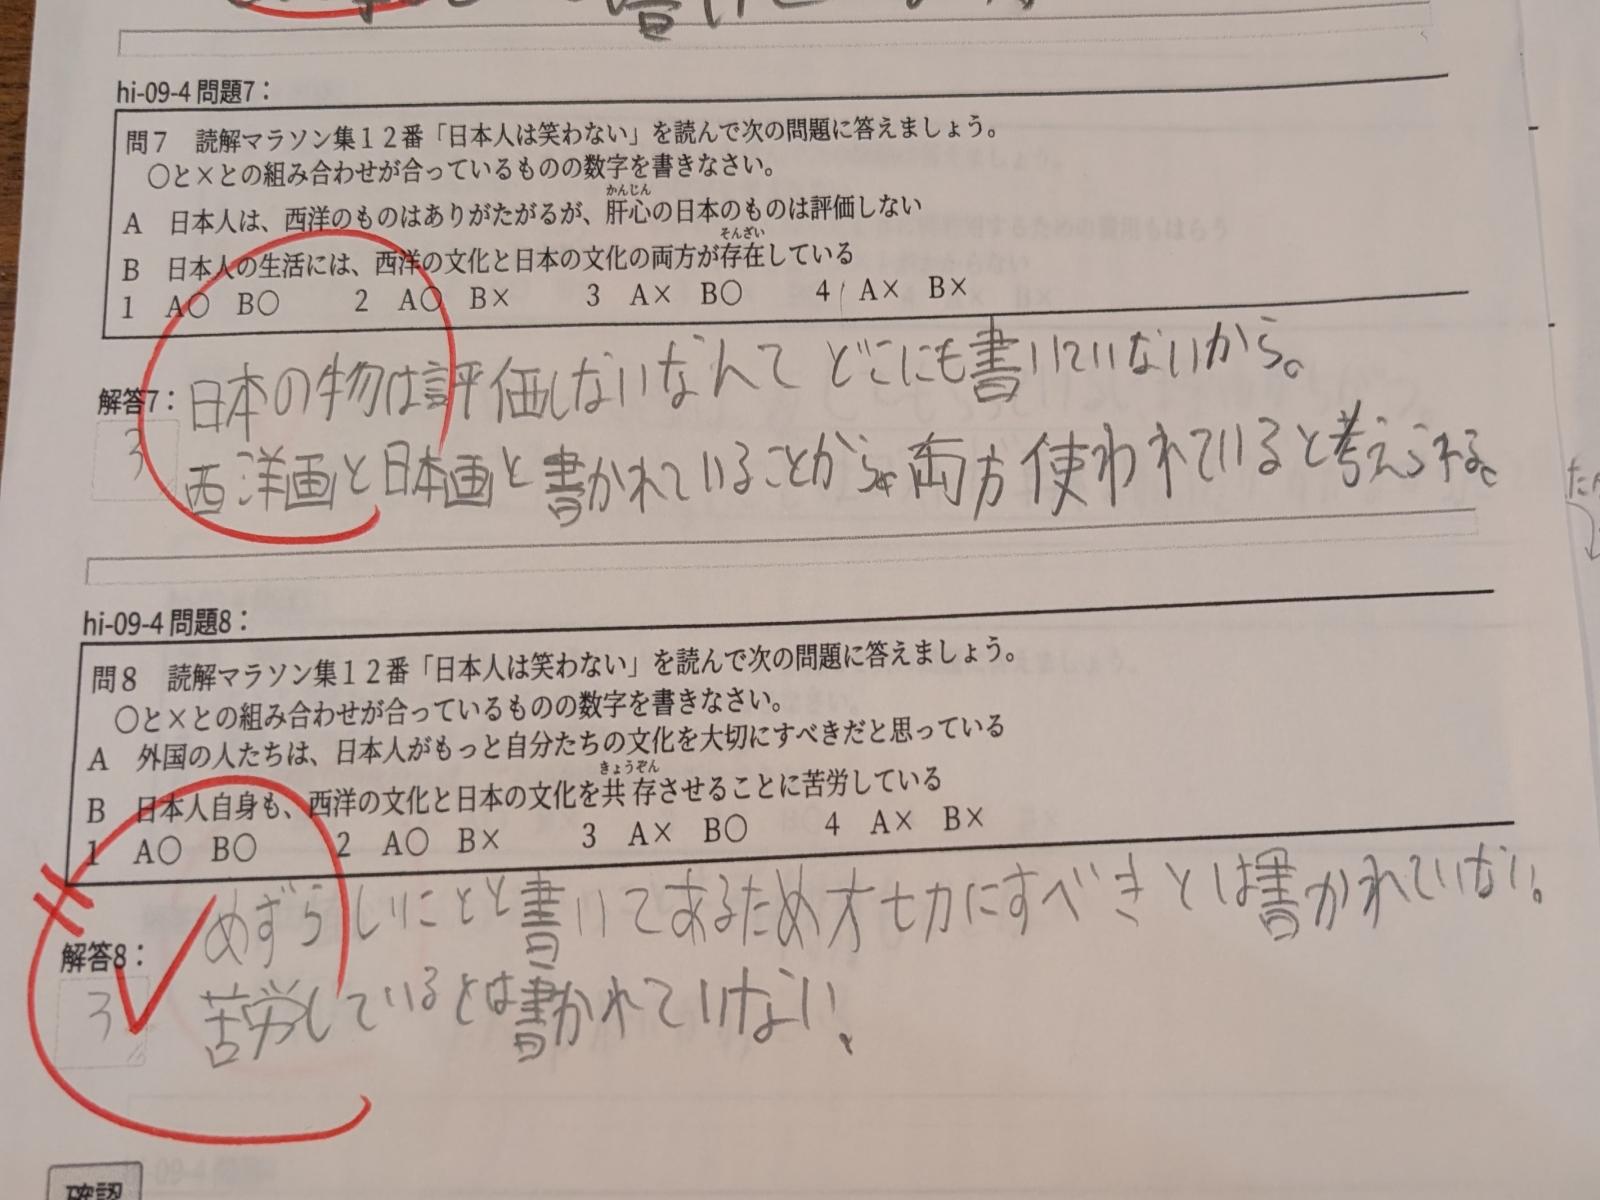 hi-09-4 問題7：
問７　読解マラソン集１２番「日本人は笑わない」を読んで次の問題に答えましょう。
○と×との組み合わせが合っているものの数字を書きなさい。
かんじん
A　日本人は、西洋のものはありがたがるが、肝心の日本のものは評価しない
そんざい
B　日本人の生活には、西洋の文化と日本の文化の両方が存在している
1　A○　B○　　2　A○　B×　　3　A×　B○　　4　A×　B×
日本の物は評価しないなんて どこにも書いていないから。
解答7：
3
西洋画と日本画と書かれていることから。両方使われていると考えられる。
hi-09-4 問題8：
問８　読解マラソン集１２番「日本人は笑わない」を読んで次の問題に答えましょう。
○と×との組み合わせが合っているものの数字を書きなさい。
A　外国の人たちは、日本人がもっと自分たちの文化を大切にすべきだと思っている
きょうぞん
B　日本人自身も、西洋の文化と日本の文化を共存させることに苦労している
1　A○　B○　　2　A○　B×　　3　A×　B○　　4　A×　B×
めずらしいことと書いてあるため大切にすべきとは書かれていない。
解答8：
3
苦労しているとは書かれていない。
確認